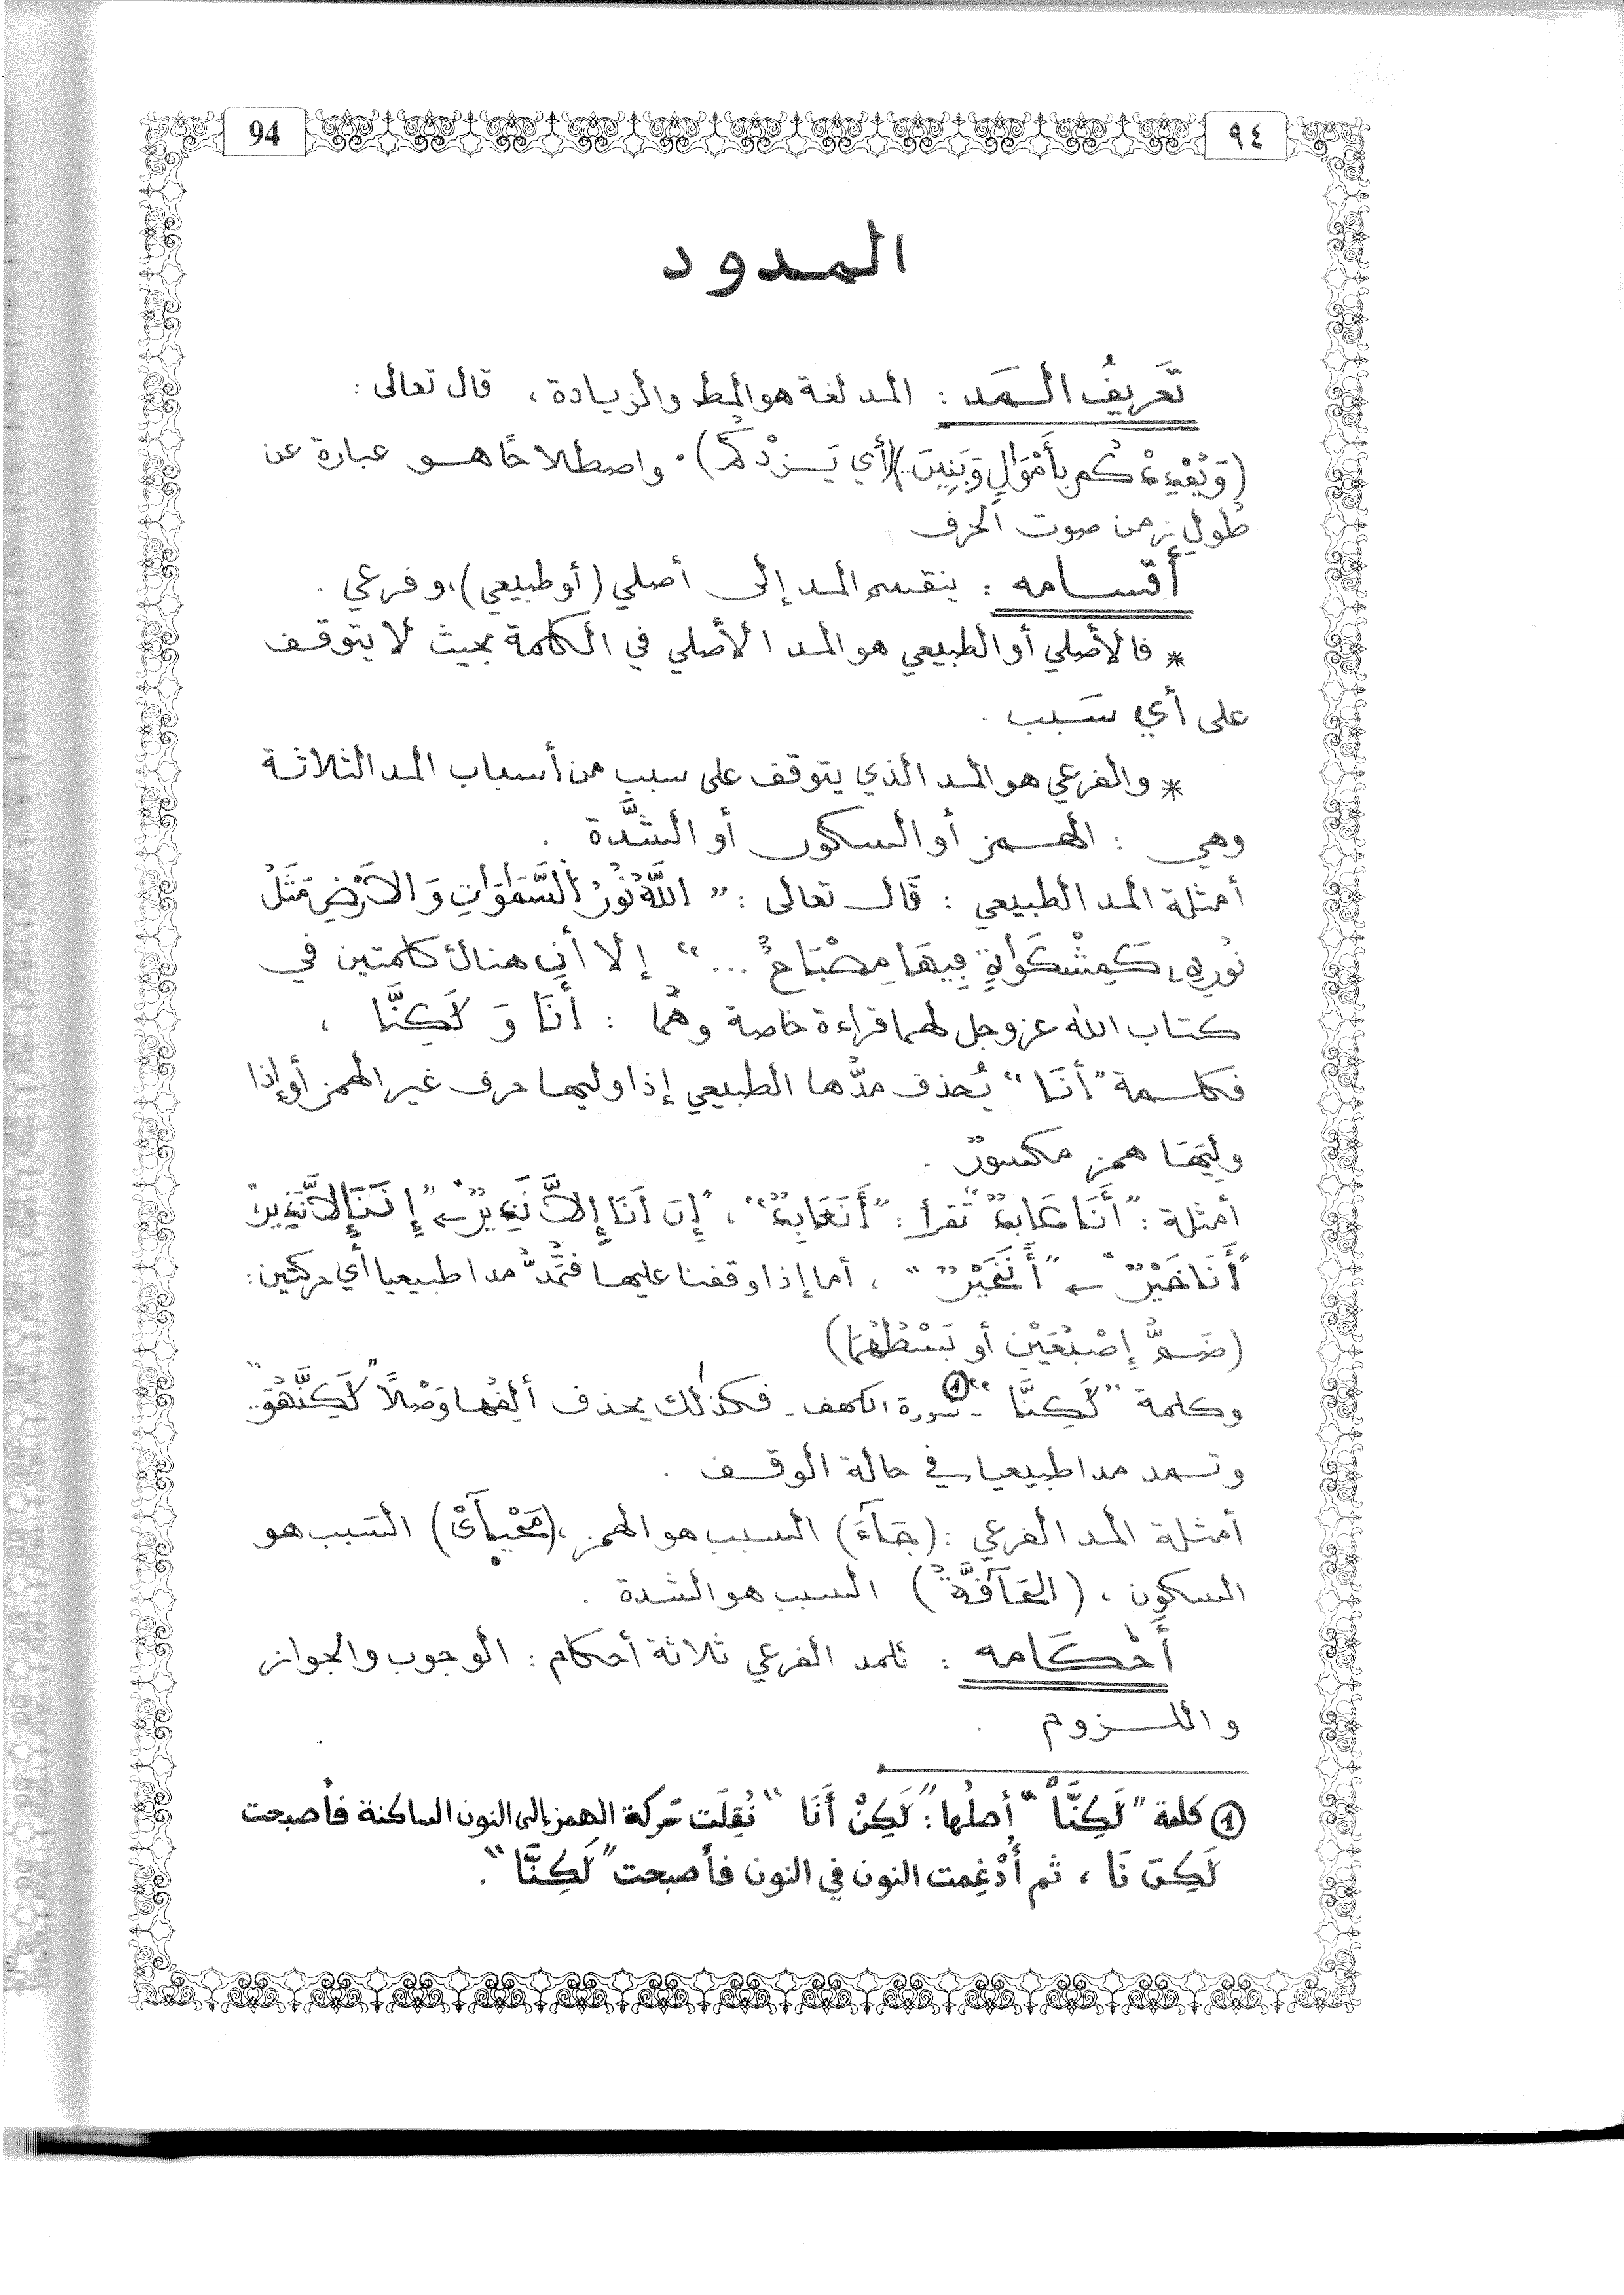 94
٩٤
المدود
تَعريفُ المَد : المد لغة هو المط والزيادة ، قال تعالى :
(وَيُمْدِدْكُم بِأَمْوَالٍ وَبَنِينَ..)(أي يَزِدْكُم) . واصطلاحًا هو عبارة عن
طول زمن صوت الحرف
أقسامه : ينقسم المد إلى أصلي (أو طبيعي) ، وفرعي .
* فالأصلي أو الطبيعي هو المد الأصلي في الكلمة بحيث لا يتوقف
على أي سَبب .
* والفرعي هو المد الذي يتوقف على سبب من أسباب المد الثلاثة
وهي : الهمز أو السكون أو الشدَّة .
أمثلة المد الطبيعي : قَال تعالى : " اللَّهُ نُورُ السَّمَٰوَٰتِ وَالاَرْضِ مَثَلُ
نُورِهِ كَمِشْكَوٰةٍ فِيهَا مِصْبَاحٌ ... " إلا أن هناك كلمتين في
كتاب الله عز وجل لهما قراءة خاصة وهُما : أَنَا وَ لَكِنَّا ،
فكلمة "أنَا" يُحذف مدُّها الطبيعي إذا وليها حرف غير الهمز أو إذا
وليَهَا همز مكسورٌ .
أمثلة : "أَنَا عَابِدٌ" تقرأ : "أَنَعَابِدٌ" ، "إِنَ اَنَا إِلاَّ نَذِيرٌ" ← "إِنَنَإِلاَّنَذِيرٌ"
"أَنَا خَيْرٌ" ← "أَنَخَيْرٌ" ، أما إذا وقفنا عليها فتُمَدُّ مدا طبيعيا أي حركتين :
(ضَمُّ إِصْبُعَيْنِ أو بَسْطُهُمَا)
وكلمة "لَكِنَّا" ① - سورة الكهف - فكذلك يحذف ألِفُها وَصْلاً "لَكِنَّهُوَ.."
وتمد مدا طبيعيا في حالة الوقف .
أمثلة المد الفرعي : (جَآءَ) السبب هو الهمز ، (مَحْيَآىْ) السَبب هو
السكون ، (الحَآقَّةُ) السبب هو الشدة .
أَحْكَامه : للمد الفرعي ثلاثة أحكام : الوجوب والجواز
واللزوم .
① كلمة "لَكِنَّا" أصلُها : "لَكِنْ أَنَا" نُقِلَت حَركة الهمز إلى النون الساكنة فأصبحت
لَكِنَ نَا ، ثم أُدْغِمت النون في النون فأصبحت "لَكِنَّا" .